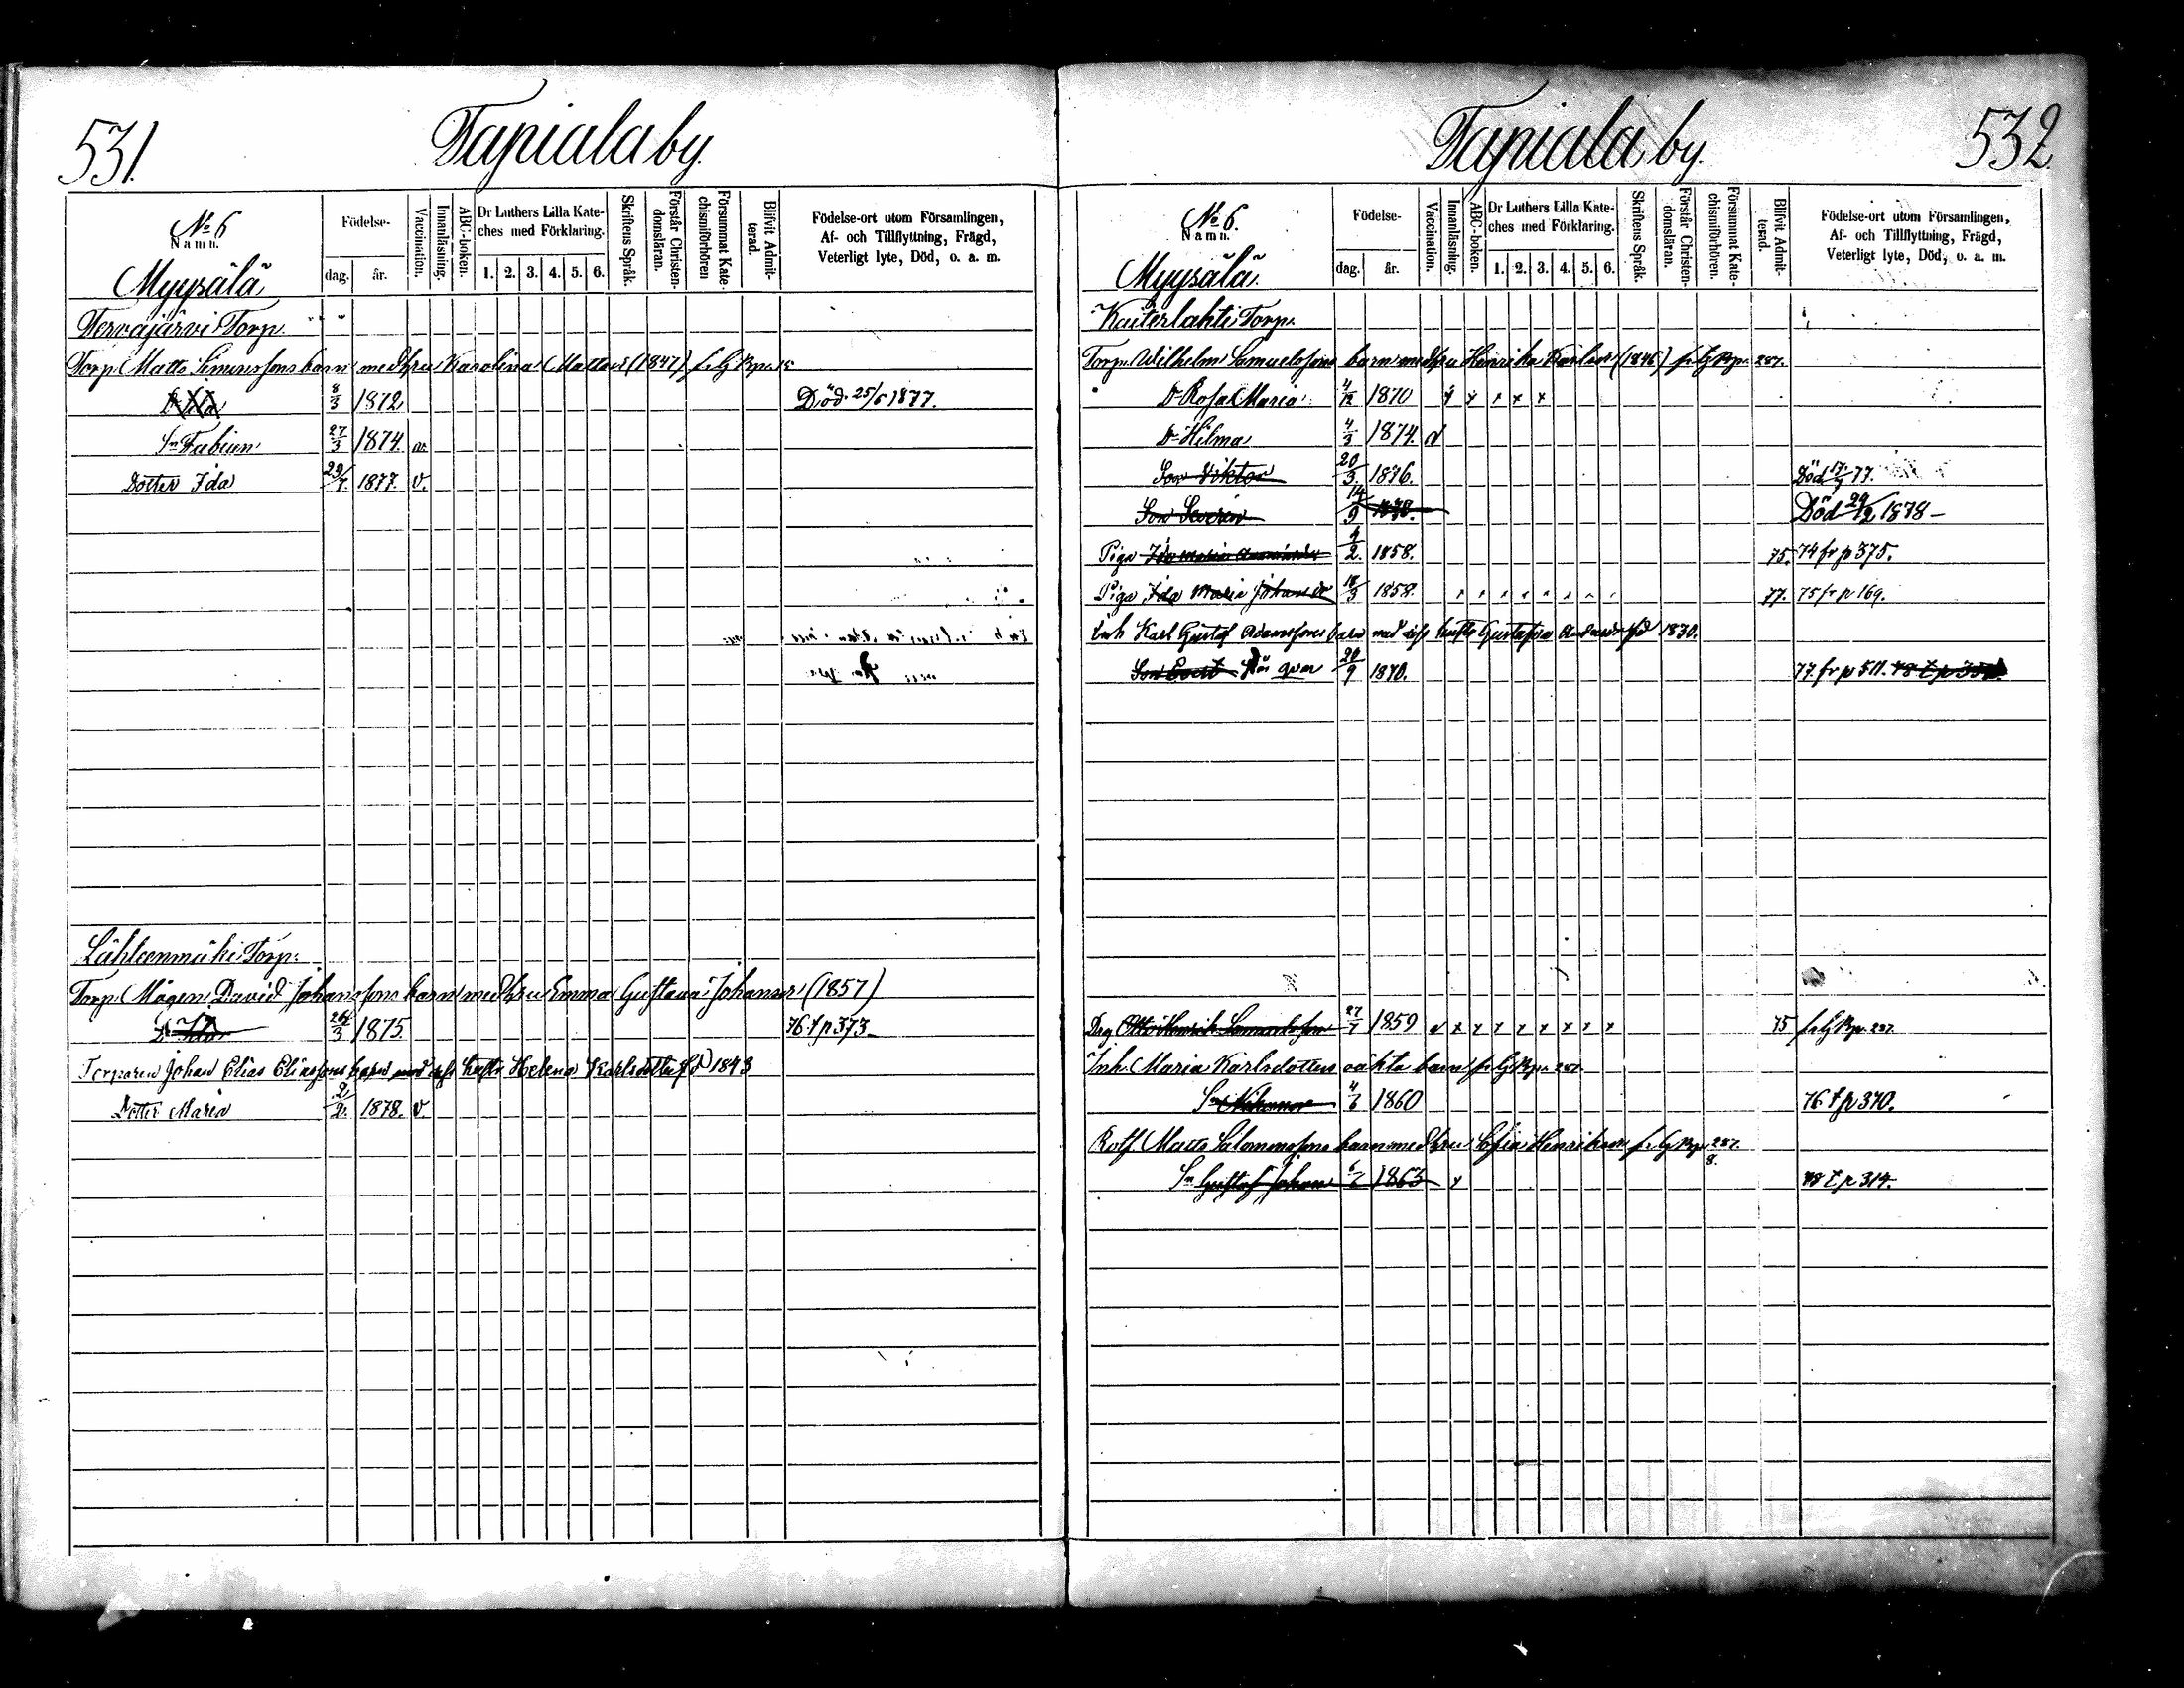 531.
Tapiala by.
No 6
Namn.
Myysälä
Födelse-
dag. år.
Vaccination.
Innanläsning.
ABC-boken.
Dr Luthers Lilla Kate-
ches med Förklaring.
1. 2. 3. 4. 5. 6.
Skriftens Språk.
Förstår Christen-
domsläran.
Försummat Kate-
chismiförhören
Blifvit Admit-
terad.
Födelse-ort utom Församlingen,
Af- och Tillflyttning, Frägd,
Veterligt lyte, Död, o. a. m.
Tervajärvi Torp.
Torp. Matts Simonssons barn med hru Karolina Mattsdr (1847) fr. G. Kp.
Dr Ida 8/3 1872 Död. 25/6 1877.
Sn Fabian 27/3 1874. v.
Dotter Ida 29/7. 1877. v.
Lähteenmäki Torp.
Torp. Mågen David Johanssons barn med hru Emma Gustava Johansdr (1857)
Dr 26/3 1875. 76 t p 373
Torparen Johan Elias Eliassons barn med dess hustru Helena Karlsdotter fd 1843
Dotter Maria 2/2. 1878. v.
532
Tapiala by.
No 6.
Namn.
Myysälä.
Födelse-
dag. år.
Vaccination.
Innanläsning.
ABC-boken.
Dr Luthers Lilla Kate-
ches med Förklaring.
1. 2. 3. 4. 5. 6.
Skriftens Språk.
Förstår Christen-
domsläran.
Försummat Kate-
chismiförhören.
Blifvit Admit-
terad.
Födelse-ort utom Församlingen,
Af- och Tillflyttning, Frägd,
Veterligt lyte, Död, o. a. m.
Kauterlahti Torp.
Torp. Wilhelm Samuelssons barn med hru Henrika Karlsdr (1846) fr. G. Kp. 287.
Dr Rosa Maria 4/12 1870 x x x x x
Dr Hilma 4/3 1874. v
Son Viktor 20/3. 1876. Död 17/7 77.
Son Severin 14/9 1878. Död 29/12 1878 -
Piga Ida Maria 4/2. 1858. 75. 74 fr p 375.
Piga Ida Maria Johansdr 18/3 1858. 77. 75 fr p 169.
Inh Karl Gustaf Adamssons barn med dess hustru Gustafva Andersdr fd 1830.
Son Evert Står qvar 20/9 1870. 77. fr p 511. 78 t p
Drg Otto Henrik Samuelsson 27/7 1859 v x x x x x x x x 75 fr G Kp. 287.
Inh. Maria Karlsdotters oäkta barn fr G Kp. 287.
Sn Nikanor 4/6 1860 76. t p 370.
Rotf. Matts Salomonssons barn med hru Sofia Henriksdr fr G Kp. 287.
8.
Sn Gustaf Johan 6/6 1863 x 78 t p 314.